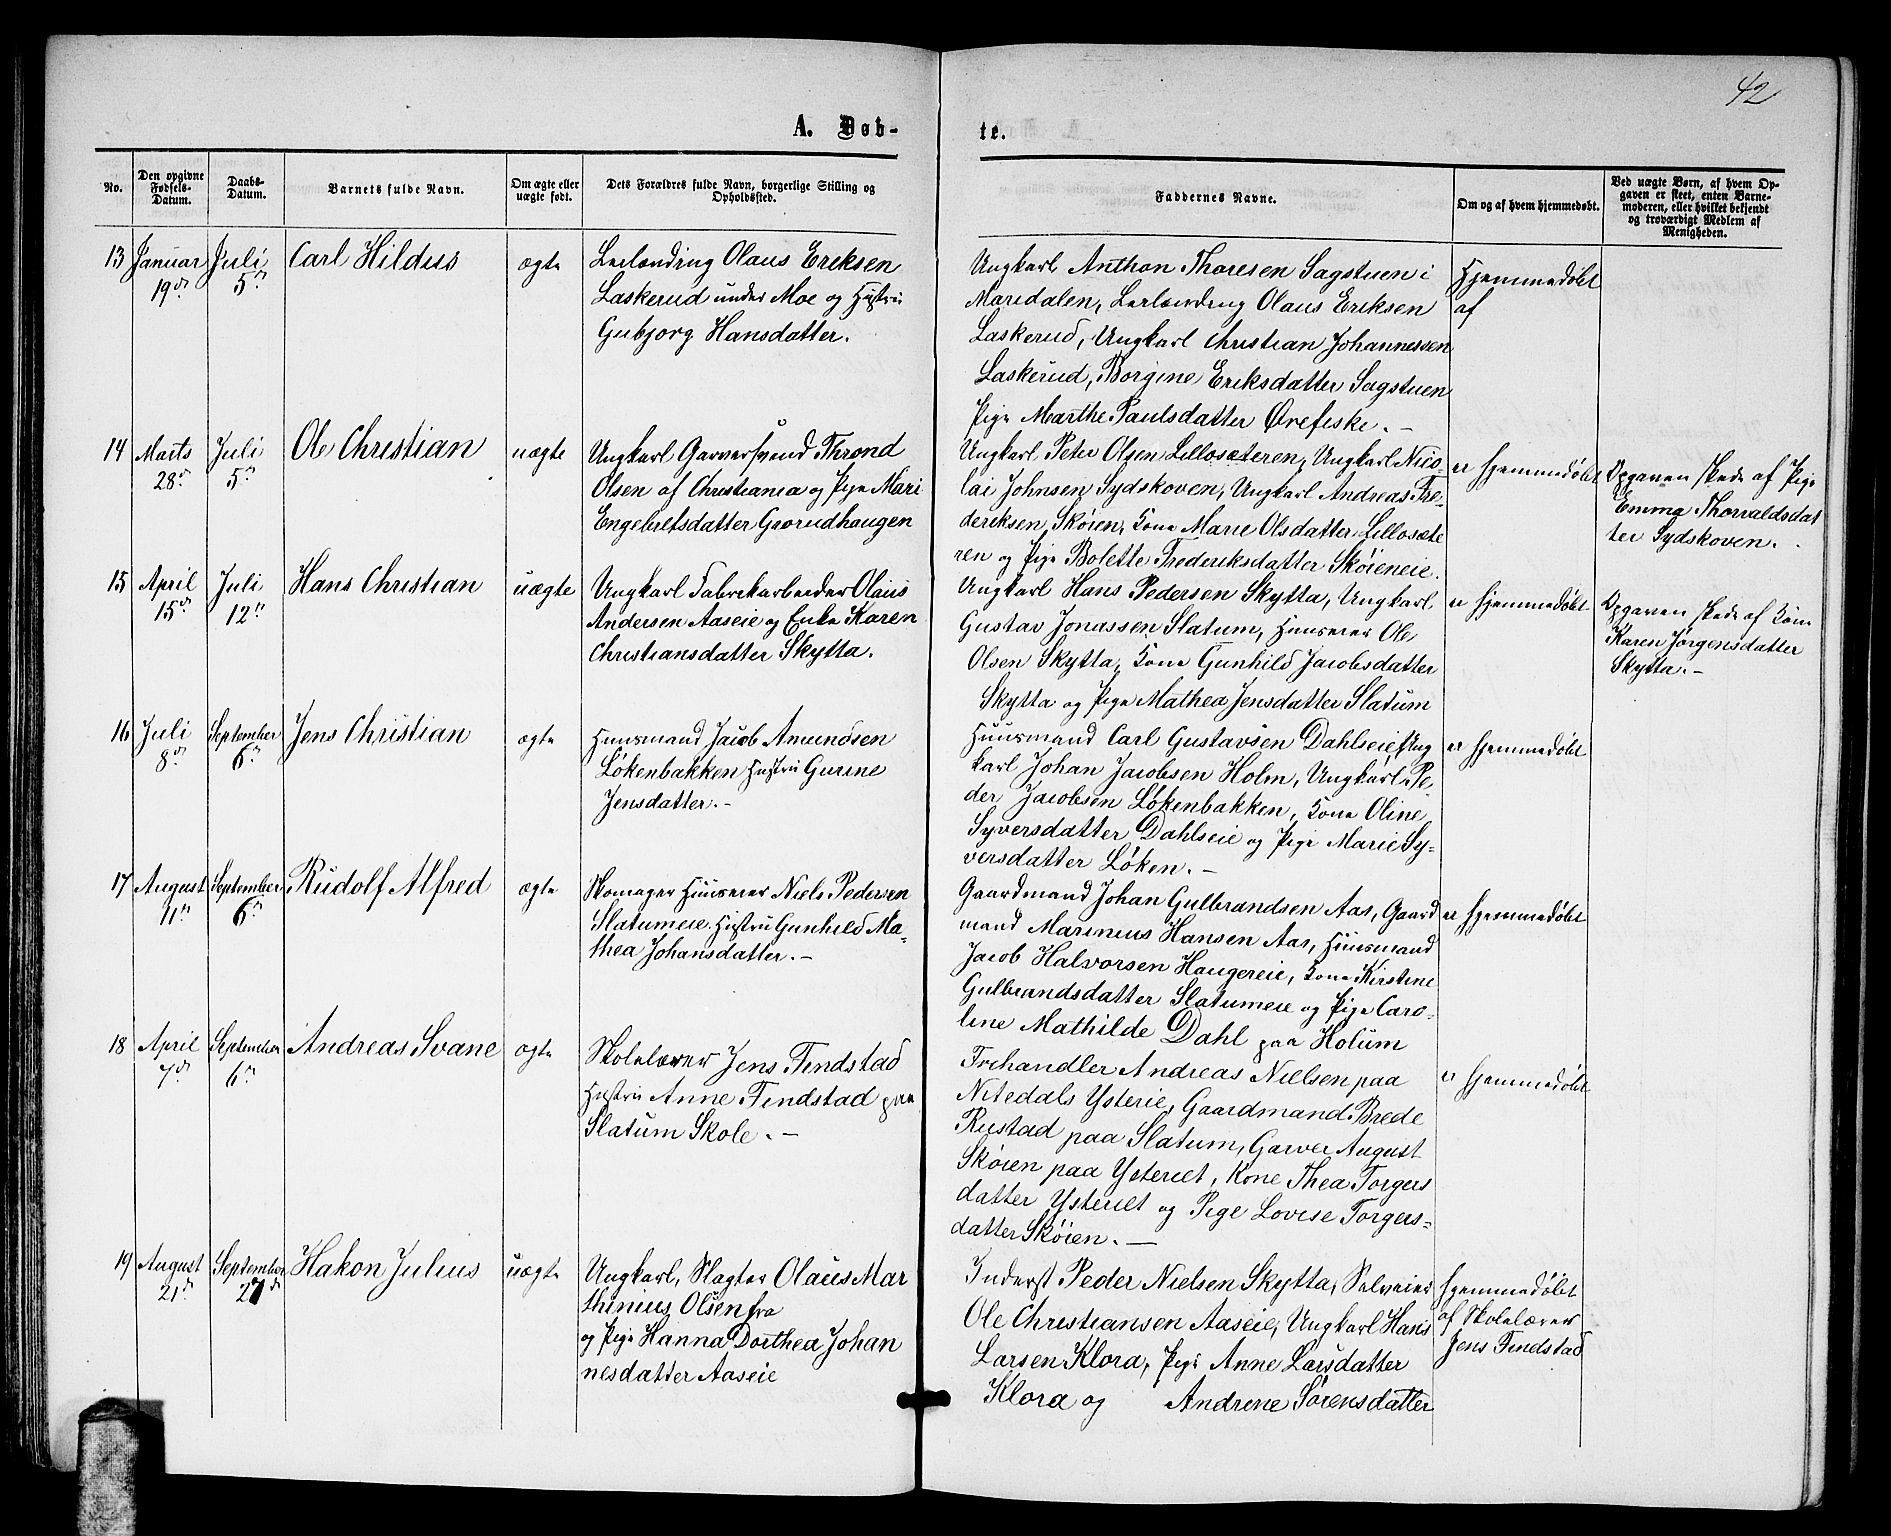 42
A. Døb-
te.
No.
Den opgivne
Fødsels-
Datum.
Daabs-
Datum.
Barnets fulde Navn.
Om ægte eller
uægte født.
Dets Forældres fulde Navn, borgerlige Stilling og
Opholdssted.
Faddernes Navne.
Om og af hvem hjemmedøbt.
Ved uægte Børn, af hvem Op-
gaven er skeet, enten Barne-
moderen, eller hvilket bekjendt
og troværdigt Medlem af
Menigheden.
13 Januar 19de
Juli 5te
Carl Hildus
ægte
Leilending Olaus Eriksen
Laskerud under Moe og Hustru
Gubjorg Hansdatter.
Ungkarl Anthon Thoresen Sagstuen i
Maridalen, Leilending Olaus Eriksen
Laskerud, Ungkarl Christian Johannessen
Laskerud, Borgine Eriksdatter Sagstuen
Pige Marthe Paulsdatter Ørefiske. -
Hjemmedøbt
af
14 Marts 28de
Juli 5te
Ole Christian
uægte
Ungkarl Garversvend Thrond
Olsen af Christiania og Pige Mari
Engebretsdatter Grorudhaugen
Ungkarl Peter Olsen Lillosæteren, Ungkarl Nico-
lai Johnsen Sydskoven, Ungkarl Andreas Fre-
deriksen Skøien, Kone Marie Olsdatter Lillosæte
ren og Pige Bolette Frederiksdatter Skøieneie.
er hjemmedøbt
Opgaven skede af Pige
Emma Thorvaldsdat
ter Sydskoven.
15 April 15de
Juli 12te
Hans Christian
uægte
Ungkarl Fabrikarbeider Olaus
Andersen Aaseie og Enke Karen
Christiansdatter Skytta.
Ungkarl Hans Pedersen Skytta, Ungkarl
Gustav Jonassen Slatum, Huuseier Ole
Olsen Skytta, Kone Gunhild Jacobsdatter
Skytta og Pige Mathea Jensdatter Slatum
er hjemmedøbt
Opgaven skede af Kone
Karen Jørgensdatter
Skytta. -
16 Juli 8de
September 6te
Jens Christian
ægte
Huusmand Jacob Amundsen
Løkenbakken Hustru Gurine
Jensdatter. -
Huusmand Carl Gustavsen Dahlseie, Ung
karl Johan Jacobsen Holm, Ungkarl Pe-
der Jacobsen Løkenbakken, Kone Oline
Syversdatter Dahlseie og Pige Marie Sy-
versdatter Løken. -
er hjemmedøbt
17 August 11te
September 6te
Rudolf Alfred
ægte
Skomager Huuseier Niels Pedersen
Slatumeie. Hustru Gunhild Ma-
thea Johansdatter. -
Gaardmand Johan Gulbrandsen Aas, Gaard
mand Marinius Hansen Aas, Huusmand
Jacob Halvorsen Haugereie, Kone Kirstine
Gulbrandsdatter Slatumeie og Pige Caro-
line Mathilde Dahl paa Holum
er hjemmedøbt
18 April 7de
September 6te
Andreas Svane
ægte
Skolelærer Jens Findstad
Hustru Anne Findstad paa
Slatum Skole. -
Frihandler Andreas Nielsen paa
Nitedals Ysterie, Gaardmand Brede
Rustad paa Slatum, Garver August
Skøien paa Ysteriet, Kone Thea Torgers
datter Ysteriet og Pige Lovise Torgers-
datter Skøien. -
er hjemmedøbt
19 August 21de
September 27de
Hakon Julius
uægte
Ungkarl, Slagter Olaus Mar
thinius Olsen fra
og Pige Hanna Dorthea Johan
nesdatter Aaseie
Inderst Peder Nielsen Skytta, Selveier
Ole Christiansen Aaseie, Ungkarl Hans
Larsen Klora, Pige Anne Larsdatter
Klora og Andrine Sørensdatter
Hjemmedøbt
af Skolelærer
Jens Findstad